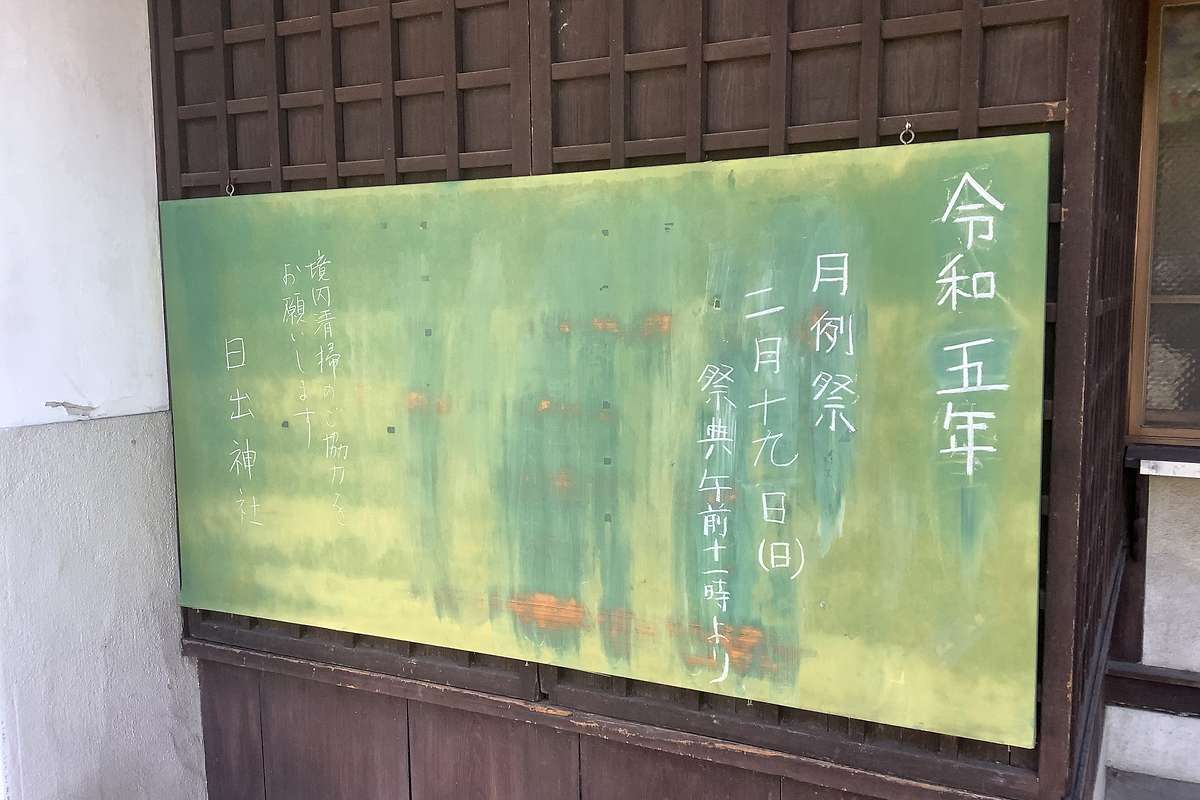 令和五年
月例祭
二月十九日(日)
祭典午前十一時より
境内清掃のご協力を
お願いします
日出神社